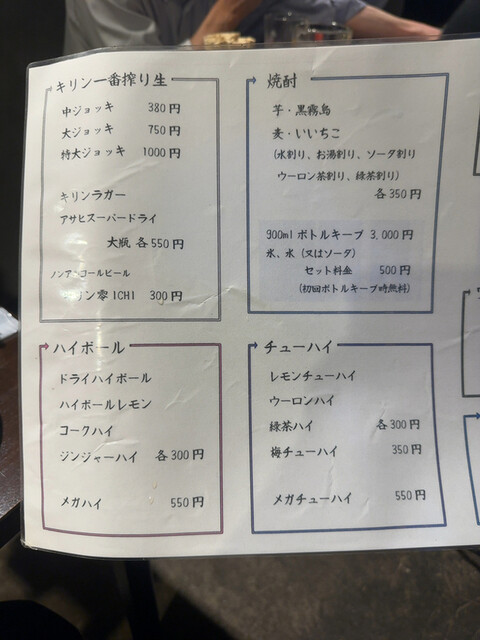 キリン一番搾り生
中ジョッキ 380円
大ジョッキ 750円
特大ジョッキ 1000円
キリンラガー
アサヒスーパードライ
大瓶 各550円
ノンアルコールビール
キリン零ICHI 300円
焼酎
芋・黒霧島
麦・いいちこ
(水割り、お湯割り、ソーダ割り
ウーロン茶割り、緑茶割り)
各350円
900ml ボトルキープ 3,000円
氷、水 (又はソーダ)
セット料金 500円
(初回ボトルキープ時無料)
ハイボール
ドライハイボール
ハイボールレモン
コークハイ
ジンジャーハイ 各300円
メガハイ 550円
チューハイ
レモンチューハイ
ウーロンハイ
緑茶ハイ 各300円
梅チューハイ 350円
メガチューハイ 550円